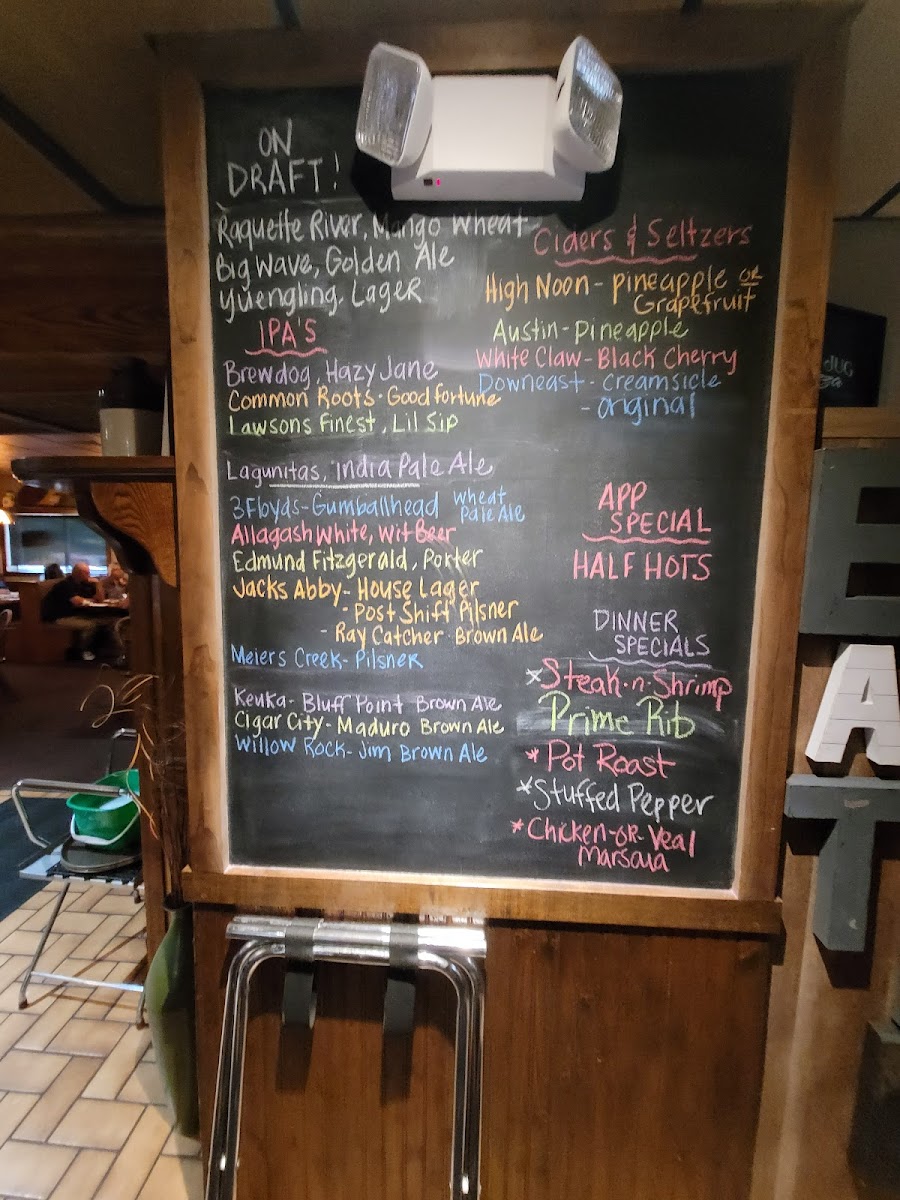 ON
DRAFT!
Raquette River, Mango Wheat
Big Wave, Golden Ale
Yuengling, Lager
IPA'S
Brewdog, Hazy Jane
Common Roots · Good Fortune
Lawsons Finest, Lil Sip
Lagunitas, India Pale Ale
3 Floyds - Gumballhead Wheat
Pale Ale
Allagash White, Wit Beer
Edmund Fitzgerald, Porter
Jacks Abby - House Lager
- Post Shift Pilsner
- Ray Catcher · Brown Ale
Meiers Creek - Pilsner
Keuka - Bluff Point Brown Ale
Cigar City - Maduro Brown Ale
Willow Rock - Jim Brown Ale
Ciders & Seltzers
High Noon - Pineapple OR
Grapefruit
Austin - Pineapple
White Claw - Black Cherry
Downeast - Creamsicle
- Original
APP
SPECIAL
HALF HOTS
DINNER
SPECIALS
* Steak · n · Shrimp
Prime Rib
* Pot Roast
* Stuffed Pepper
* Chicken - OR - Veal
Marsala
E
A
T